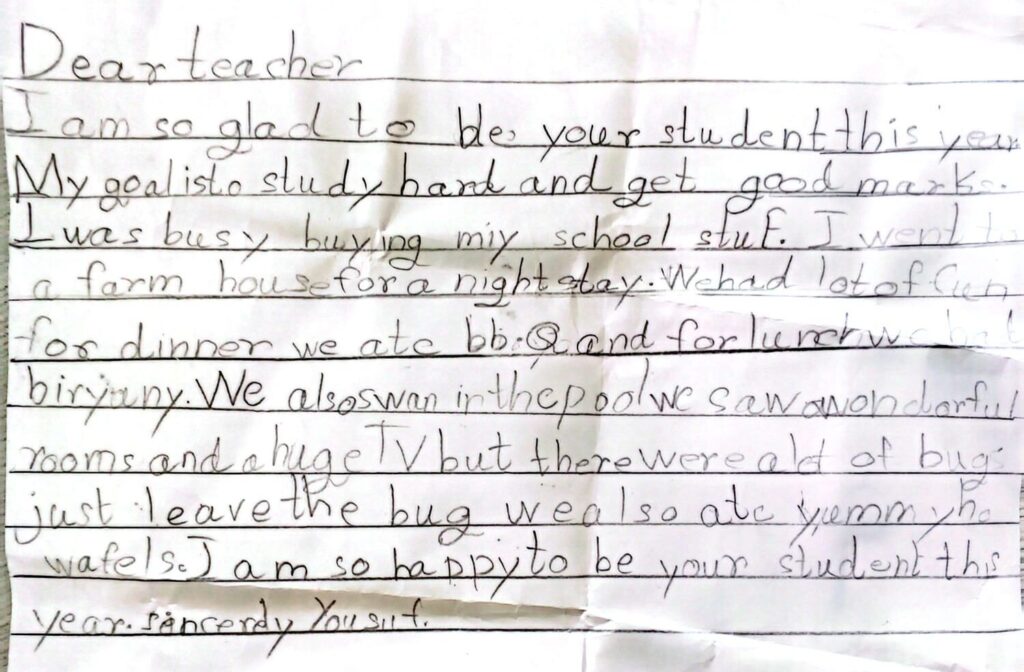 Dear teacher
I am so glad to be your student this year
My goal is to study hard and get good marks.
I was busy buying miy school stuf. I went to
a farm house for a night stay. We had lot of fun
for dinner we ate bb.Q and for lunch we
biryany. We also swan in the pool we saw a wondorful
rooms and a huge TV but there were a lot of bugs
just leave the bug we also ate yummy
wafels. I am so happy to be your student this
year. sincerdy Yousuf.